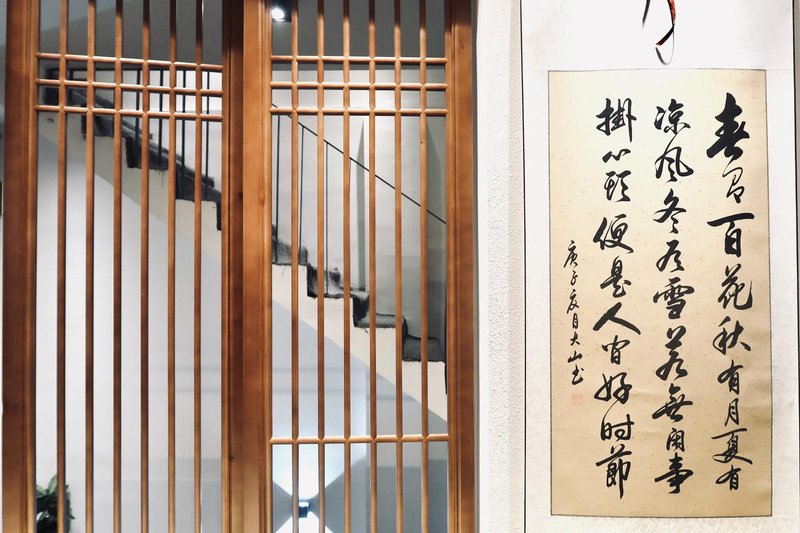 春有百花秋有月夏有
凉風冬有雪若無閑事
掛心頭便是人间好时節
庚子夏月大山书